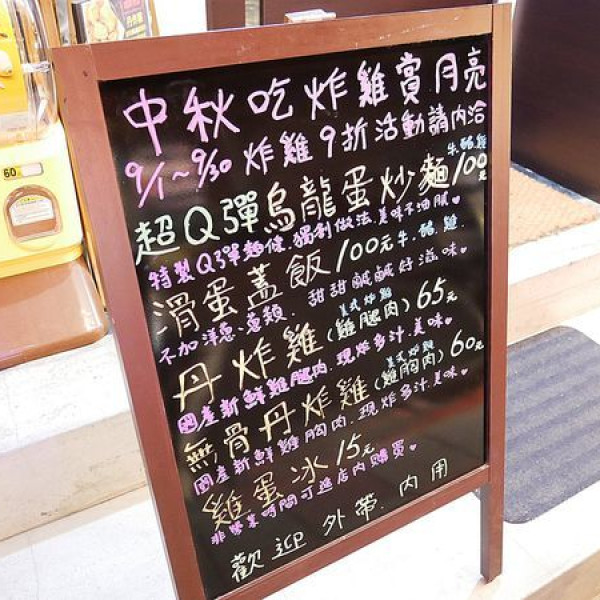 中秋吃炸雞賞月亮
9/1~9/30 炸雞9折活動請內洽
超Q彈烏龍蛋炒麵100元 牛.豬.雞
特製Q彈麵條,獨創做法,美味不油膩♥
滑蛋蓋飯100元 牛.豬.雞.
不加洋蔥、蔥類.甜甜鹹鹹好滋味♥
丹炸雞(雞腿肉)65元 美式炸雞
國產新鮮雞腿肉.現炸多汁.美味♥
無骨丹炸雞(雞胸肉)60元 美式炸雞
國產新鮮雞胸肉.現炸多汁.美味♥
雞蛋冰15元
非營業時間可進店內購買♥
歡迎外帶.內用
60